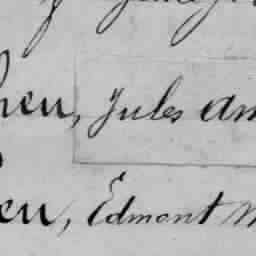 hen, Jules Am
en, Edmont M